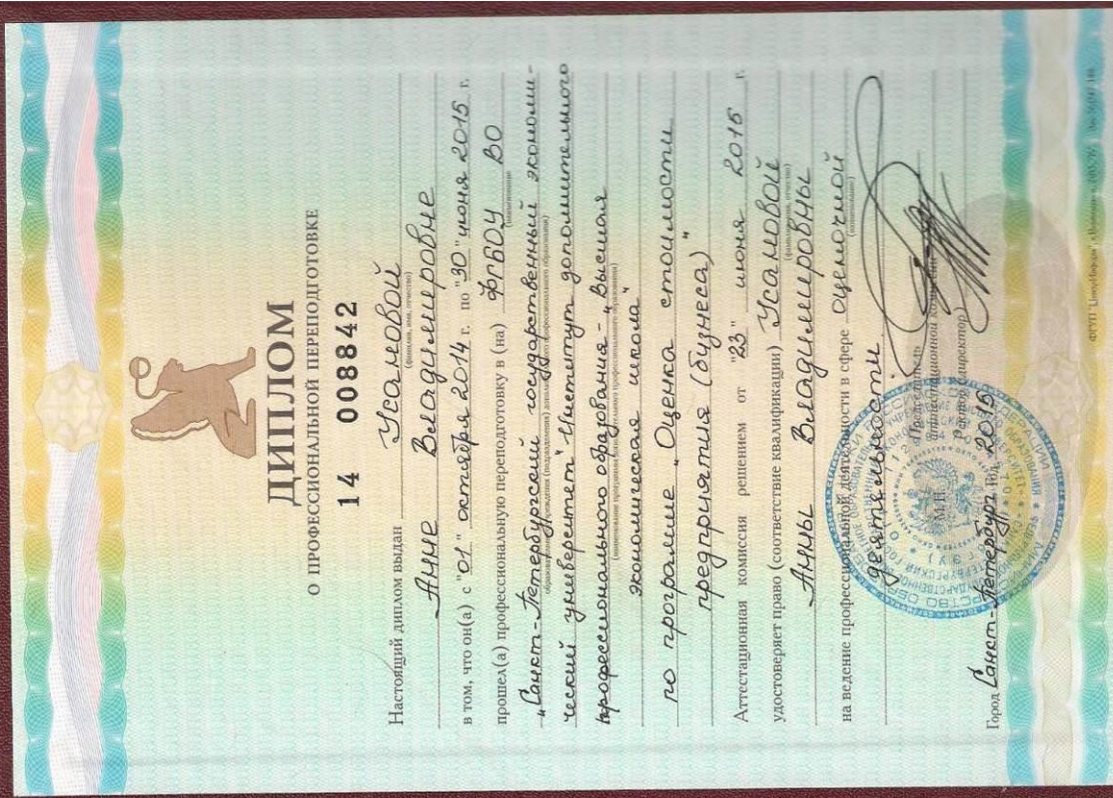 ДИПЛОМ
О ПРОФЕССИОНАЛЬНОЙ ПЕРЕПОДГОТОВКЕ
14 008842
Настоящий диплом выдан Усановой
(фамилия, имя, отчество)
Анне Владимировне
в том, что он(а) с "01" октября 2014 г. по "30" июня 2015 г.
прошел(а) профессиональную переподготовку в (на) ФГБОУ ВО
(наименование
"Санкт-Петербургский государственный экономи-
образовательного учреждения (подразделения) дополнительного профессионального образования)
ческий университет" "Институт дополнительного
профессионального образования - "Высшая
(наименование программы дополнительного профессионального образования)
экономическая школа"
по программе "Оценка стоимости
предприятия (бизнеса)"
Аттестационная комиссия решением от "23" июня 2015 г.
удостоверяет право (соответствие квалификации) Усановой
(фамилия, имя, отчество)
Анны Владимировны
на ведение профессиональной деятельности в сфере оценочной
(наименование)
деятельности
Председатель
аттестационной комиссии
Ректор (директор)
М.П.
Город Санкт-Петербург год 2015